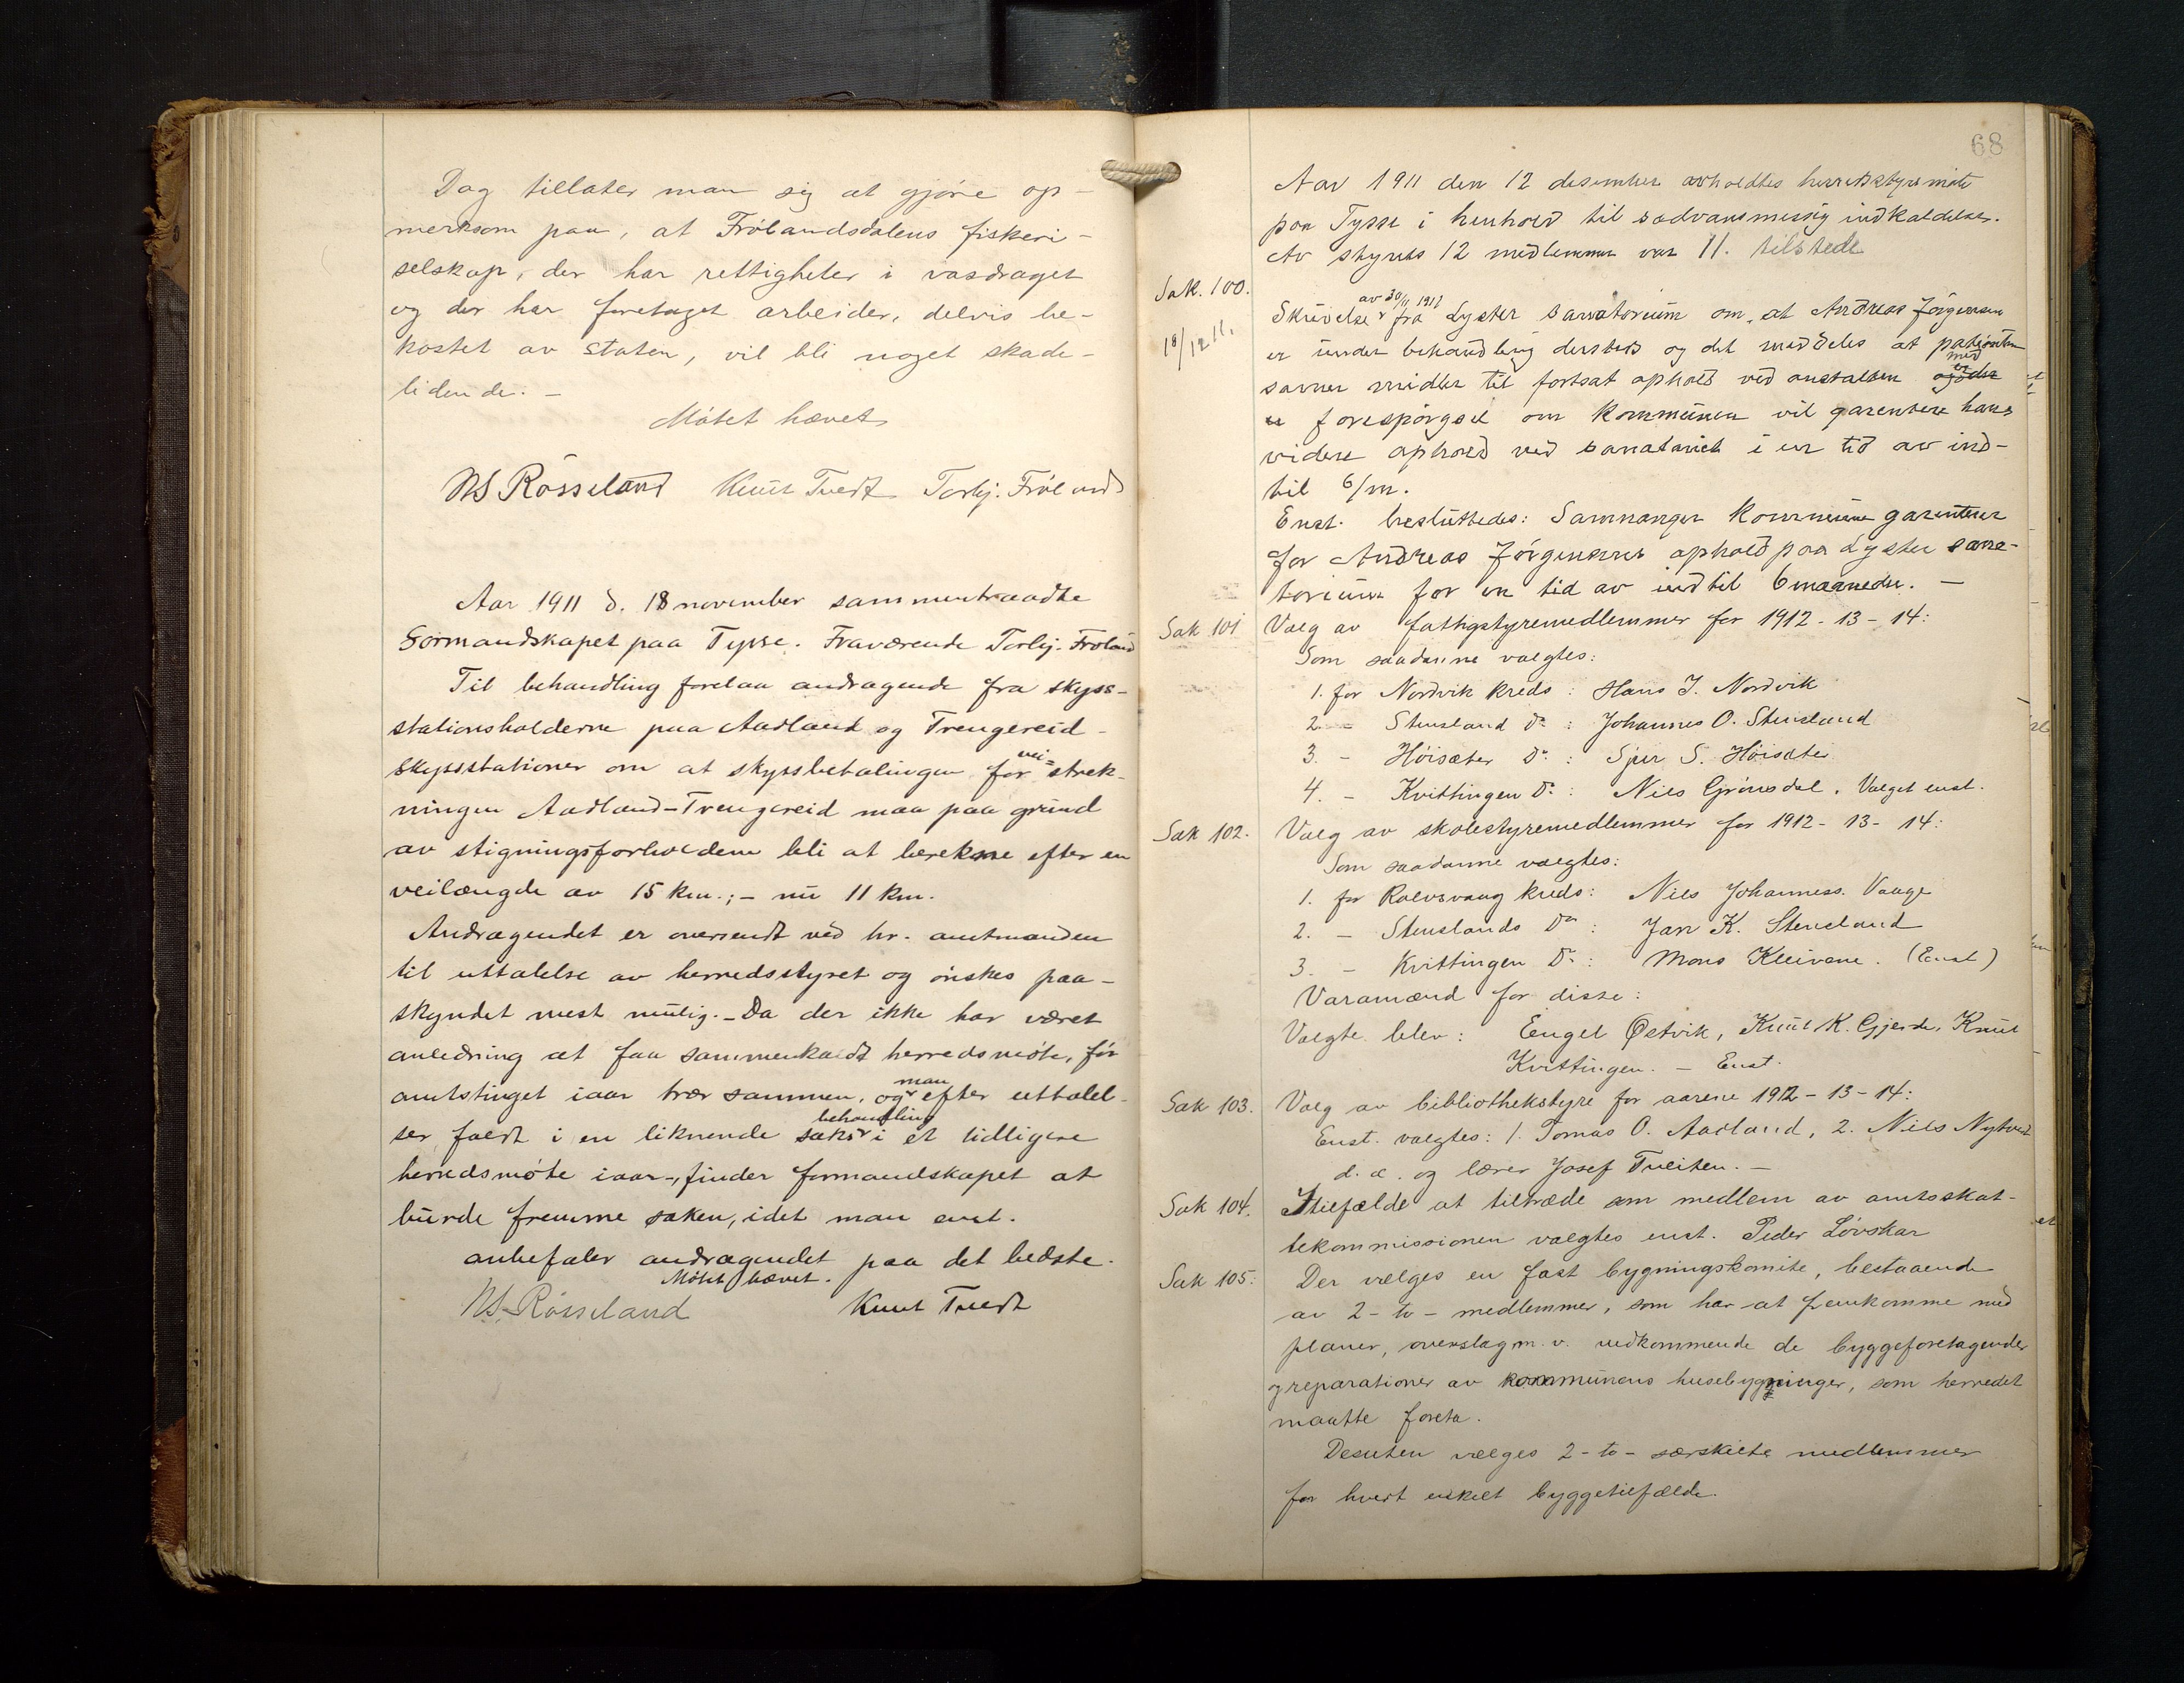 Dog tillater man sig at gjøre op-
merksom paa, at Frølandsdalens fiskeri-
selskap, der har rettigheter i vasdraget
og der har foretaget arbeider, delvis be-
kostet av staten, vil bli noget skade-
lidende. -
Møtet hævet
NS Røsseland Knut Tvedt Torbj. Frøland
Aar 1911 d. 18 november sammentraadte
Formandskapet paa Tysse. Fraværende Torbj. Frøland
Til behandling forelaa andragende fra skyss-
stationsholderne paa Aadland og Trengereid
skysstationer om at skyssbetalingen for vei-strek-
ningen Aadland-Trengereid maa paa grund
av stigningsforholdene bli at berekne efter en
veilængde av 15 km.; - nu 11 km.
Andragendet er oversendt ved hr. amtmanden
til uttalelse av herredsstyret og ønskes paa-
skyndet mest mulig. - Da der ikke har været
anledning at faa sammenkaldt herredsmøte, før
amtstinget iaar træ sammen, og man efter uttalel-
ser faldt i en liknende saks behandling i et tidligere
herredsmøte iaar-, finder formandskapet at
burde fremme saken, idet man enst.
anbefaler andragendet paa det bedste.
Møtet hævet.
NS. Røsseland Knut Tvedt
68
Aar 1911 den 12 desember avholdtes herredsstyremøte
paa Tysse i henhold til sedvansmessig indkaldelse.
Av styrets 12 medlemmer var 11. tilstede
Sak. 100.
18/12 11.
Skrivelse av 30/11 1911 fra Lyster sanatorium om, at Andreas Jørgensen
er under behandling dersteds og det meddeles at patienten
savner midler til fortsat ophold ved anstalten med
forespørgsel om kommunen vil garentere hans
videre ophold ved sanatoriet i en tid av ind-
til 6/m.
Enst. besluttedes: Samnanger kommune garenterer
for Andreas Jørgensens ophold paa Lyster sana-
torium for en tid av indtil 6 maaneder. -
Sak 101 Valg av fattigstyremedlemmer for 1912 - 13 - 14:
Som saadanne valgtes:
1. for Nordvik kreds: Hans J. Nordvik
2 - Stensland Do: Johannes O. Stensland
3. - Høisæter Do: Sjur S. Høisæter
4. - Kvittingen Do: Nils Grønsdal. Valget enst.
Sak 102. Valg av skolestyremedlemmer for 1912 - 13 - 14:
Som saadanne valgtes:
1. for Rolvsvaag kreds: Nils Johanness. Vaage
2. - Stenslands Do: Jan K. Stensland
3. - Kvittingen Do: Mons Kleivane. (Enst)
Varamænd for disse:
Valgte blev: Engel Østvik, Knut K. Gjerde, Knut
Kvittingen. - Enst.
Sak 103. Valg av bibliothekstyre for aarene 1912 - 13 - 14:
Enst. valgtes: 1. Tomas O. Aadland, 2. Nils Nytvedt
d. æ. og lærer Josef Tveiten. -
Sak 104. Itilfælde at tiltræde som medlem av amtsskat-
tekommissionen valgtes enst. Peder Løvskar
Sak 105: Der vælges en fast bygningskomite, bestaaende
av 2 - to - medlemmer, som har at fremkomme med
planer, overslag m. v. vedkommende de byggeforetagender
og reparationer av kommunens husebygninger, som herredet
maatte foreta.
Desuten vælges 2 - to - særskilte medlemmer
for hvert enkelt byggetilfælde.